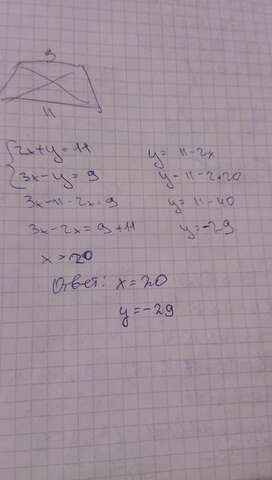 9
11
2x+y=11
3x-y=9
3x-11-2x=9
3x-2x=9+11
x=20
y=11-2x
y=11-2·20
y=11-40
y=-29
Ответ: x=20
y=-29